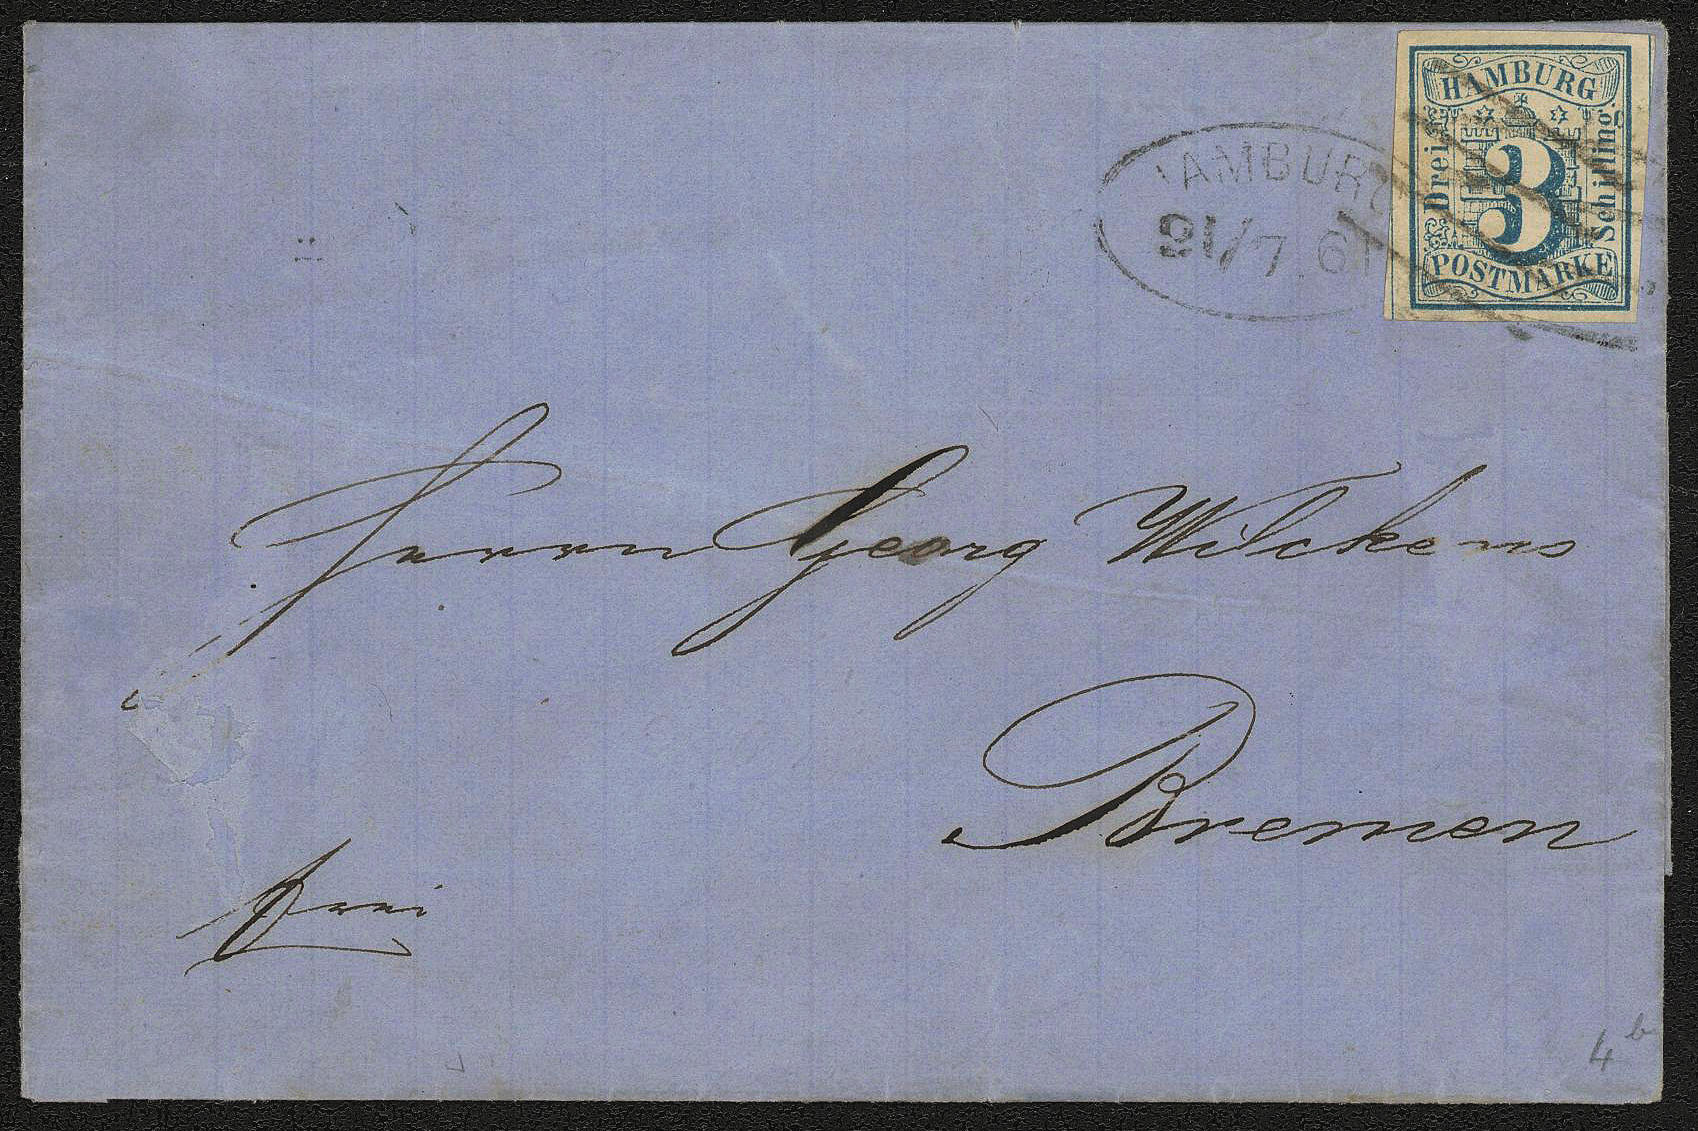 HAMBURG
Drei
3
Schilling.
POSTMARKE
HAMBURG
21/7 61
Herrn Georg Wilckens
Bremen
frei
4 b